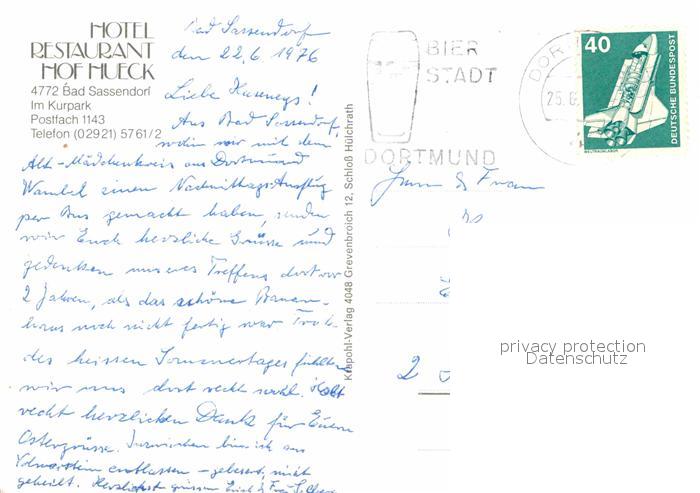 HOTEL
RESTAURANT
HOF HUECK
4772 Bad Sassendorf
Im Kurpark
Postfach 1143
Telefon (02921) 5761/2
Bad Sassendorf
den 22.6.1976
Liebe
Aus Bad Sassendorf,
wohin wir mit dem
Alt-Mädchenkreis aus Dortmund
Wambel einen Nachmittagsausflug
per Bus gemacht haben, senden
wir Euch herzliche Grüsse und
gedenken unseres Treffens dort vor
2 Jahren, als das schöne Bauern-
haus noch nicht fertig war. Trotz
des heissen Sommertages fühlten
wir uns dort recht wohl. Habt
recht herzlichen Dank für Euere
Ostergrüsse. Inzwischen bin ich aus
entlassen - gebessert, nicht
geheilt. Herzlichst grüssen Euch
Krapohl-Verlag 4048 Grevenbroich 12, Schloß Hülchrath
BIER
STADT
DORTMUND
DOR
25.6
40
DEUTSCHE BUNDESPOST
WELTRAUMLABOR
Herrn & Frau
2
privacy protection
Datenschutz